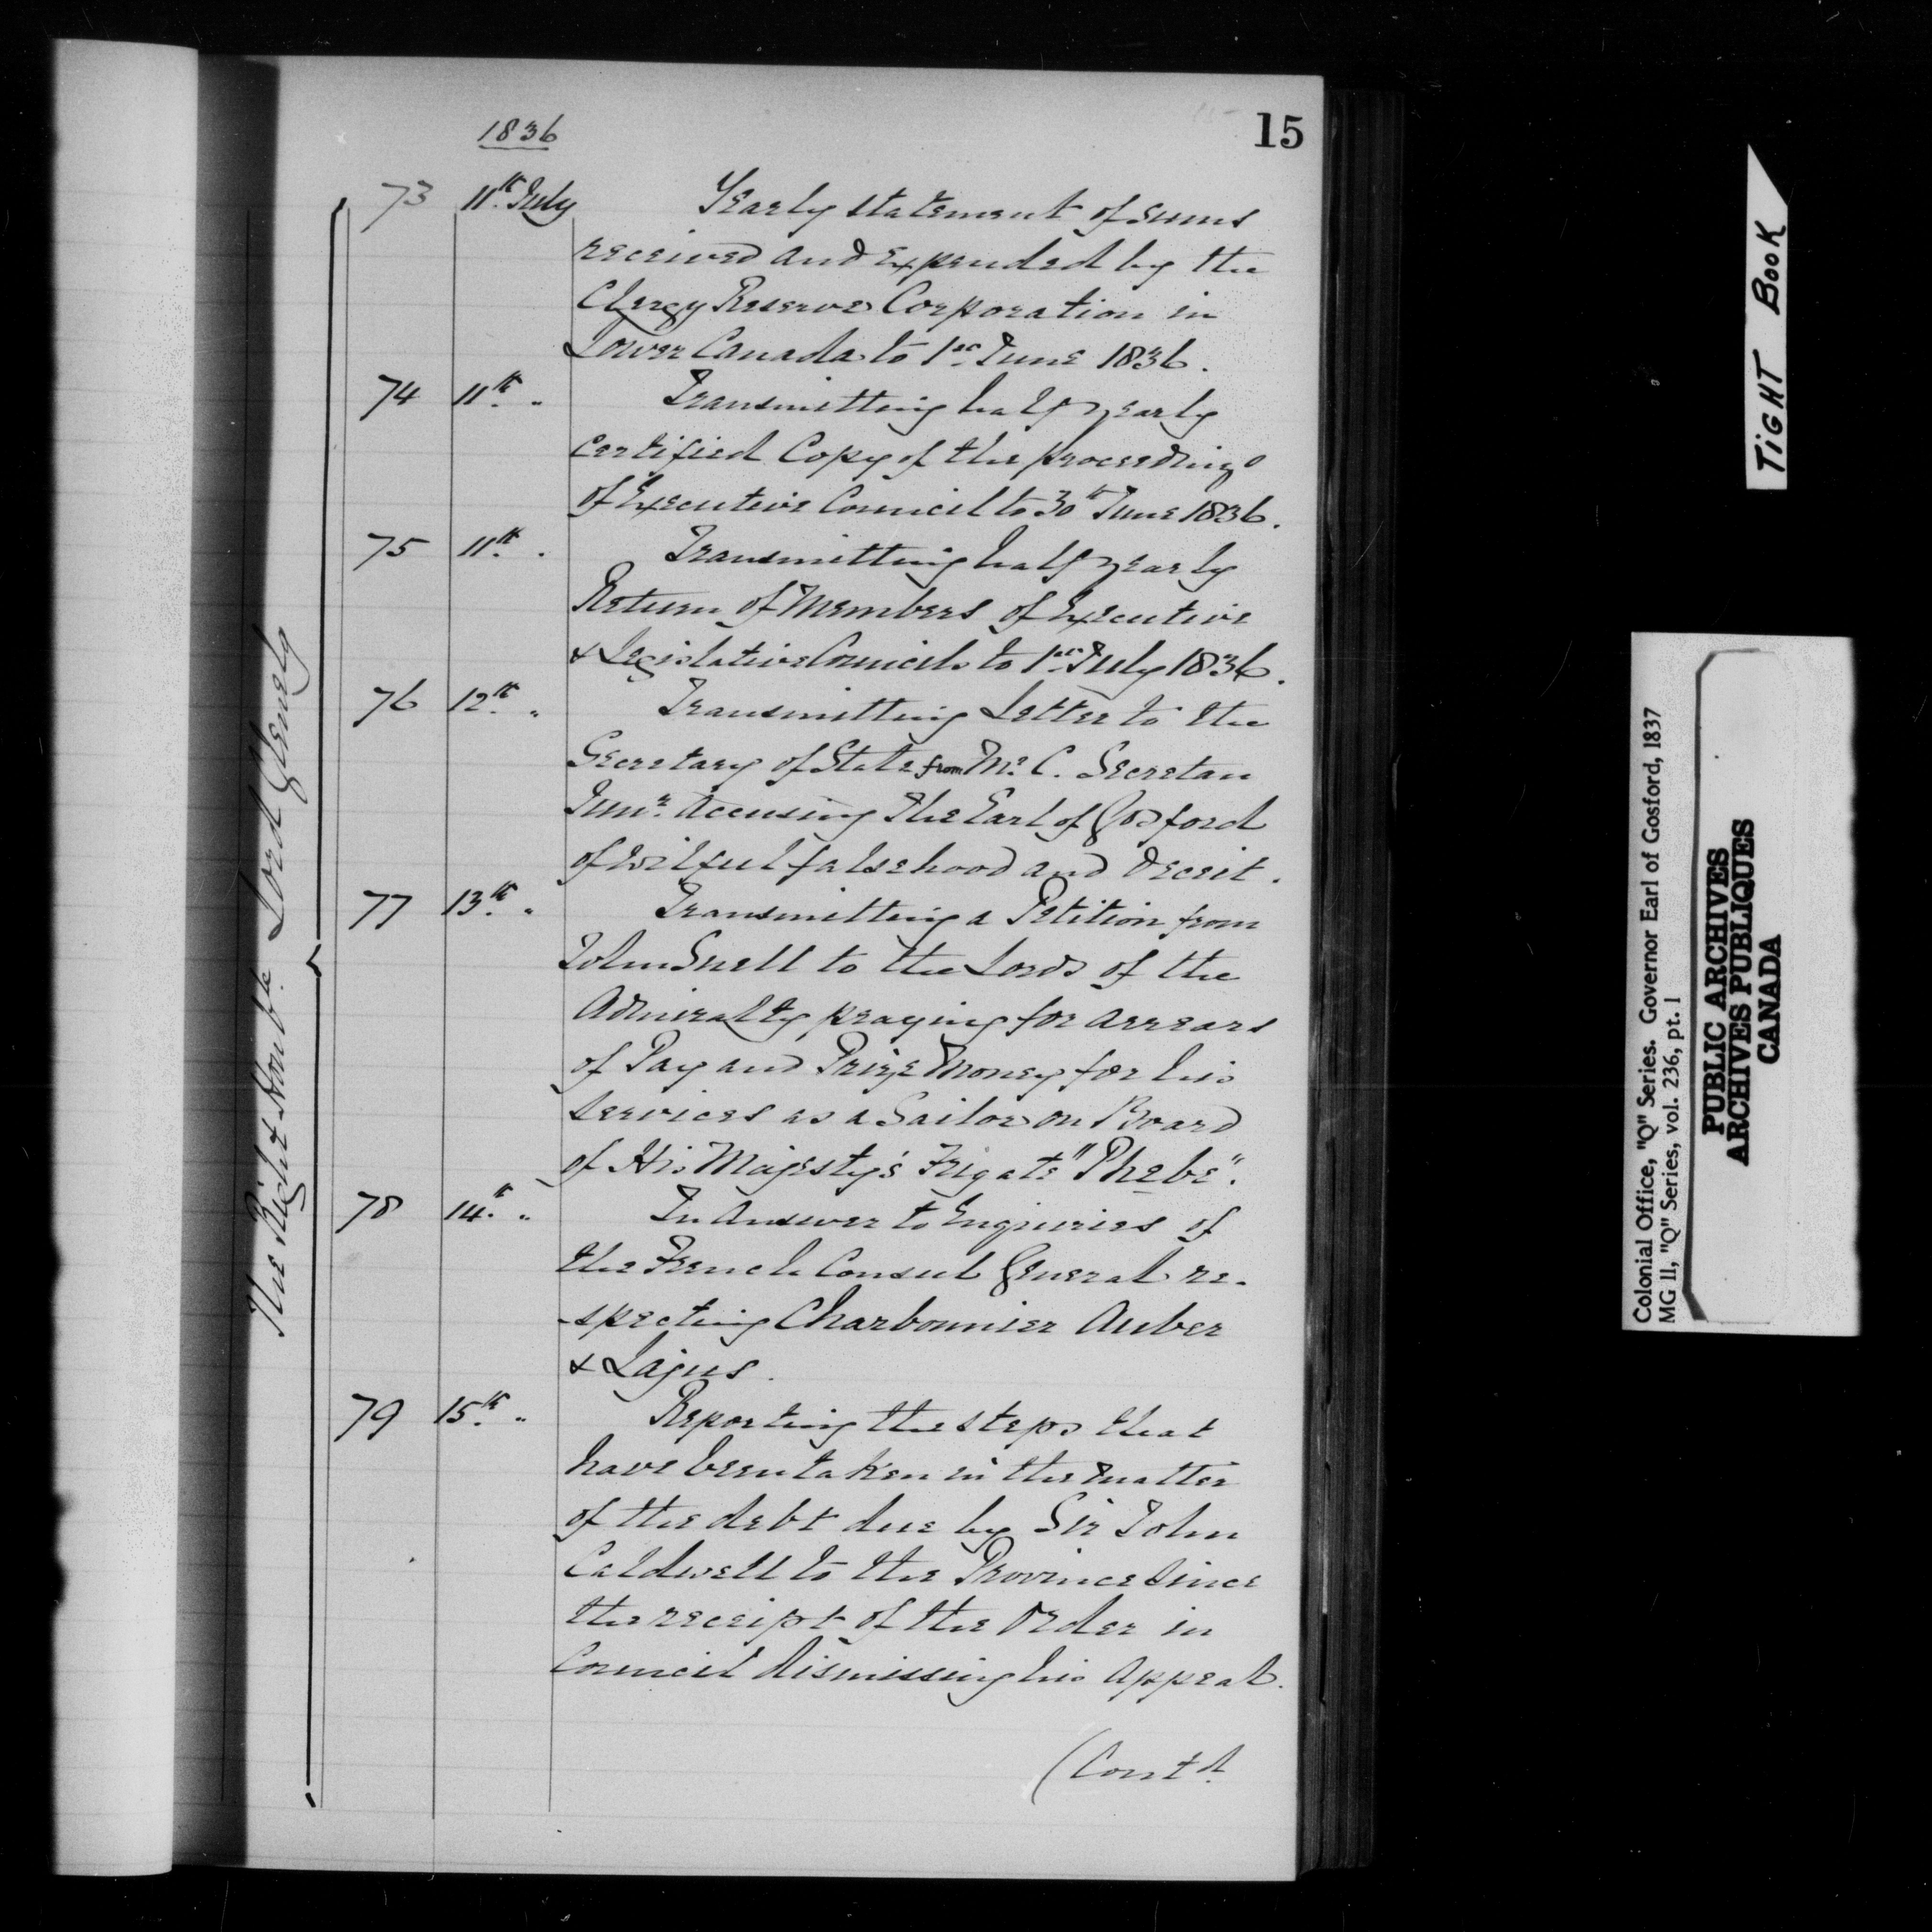 15
1836
The Right Honble. Lord Glenelg
73 11th. July Yearly statement of sums
received and Expended by the
Clergy Reserve Corporation in
Lower Canada to 1st. June 1836.
74 11th. " Transmitting half yearly
certified Copy of the proceedings
of Executive Council to 30th June 1836.
75 11th. " Transmitting half yearly
Return of Members of Executive
& Legislative Councils to 1st. July 1836.
76 12th. " Transmitting Letter to the
Secretary of State from Mr. C. Secretan
Junr. Accusing the Earl of Gosford
of wilful falsehood and deceit.
77 13th. " Transmitting a Petition from
John Snell to the Lords of the
Admiralty praying for arrears
of Pay and Prize Money for his
services as a Sailor on Board
of His Majesty's Frigate "Phebe".
78 14th. " In Answer to Enquiries of
the French Consul General re-
-specting Charbonnier Auber
& Lajus.
79 15th. " Reporting the steps that
have been taken in the matter
of the debt due by Sir John
Caldwell to the Province since
the receipt of the Order in
Council dismissing his Appeal.
(Contd.
TIGHT BOOK
Colonial Office, "Q" Series. Governor Earl of Gosford, 1837
MG 11, "Q" Series, vol. 236, pt. 1
PUBLIC ARCHIVES
ARCHIVES PUBLIQUES
CANADA